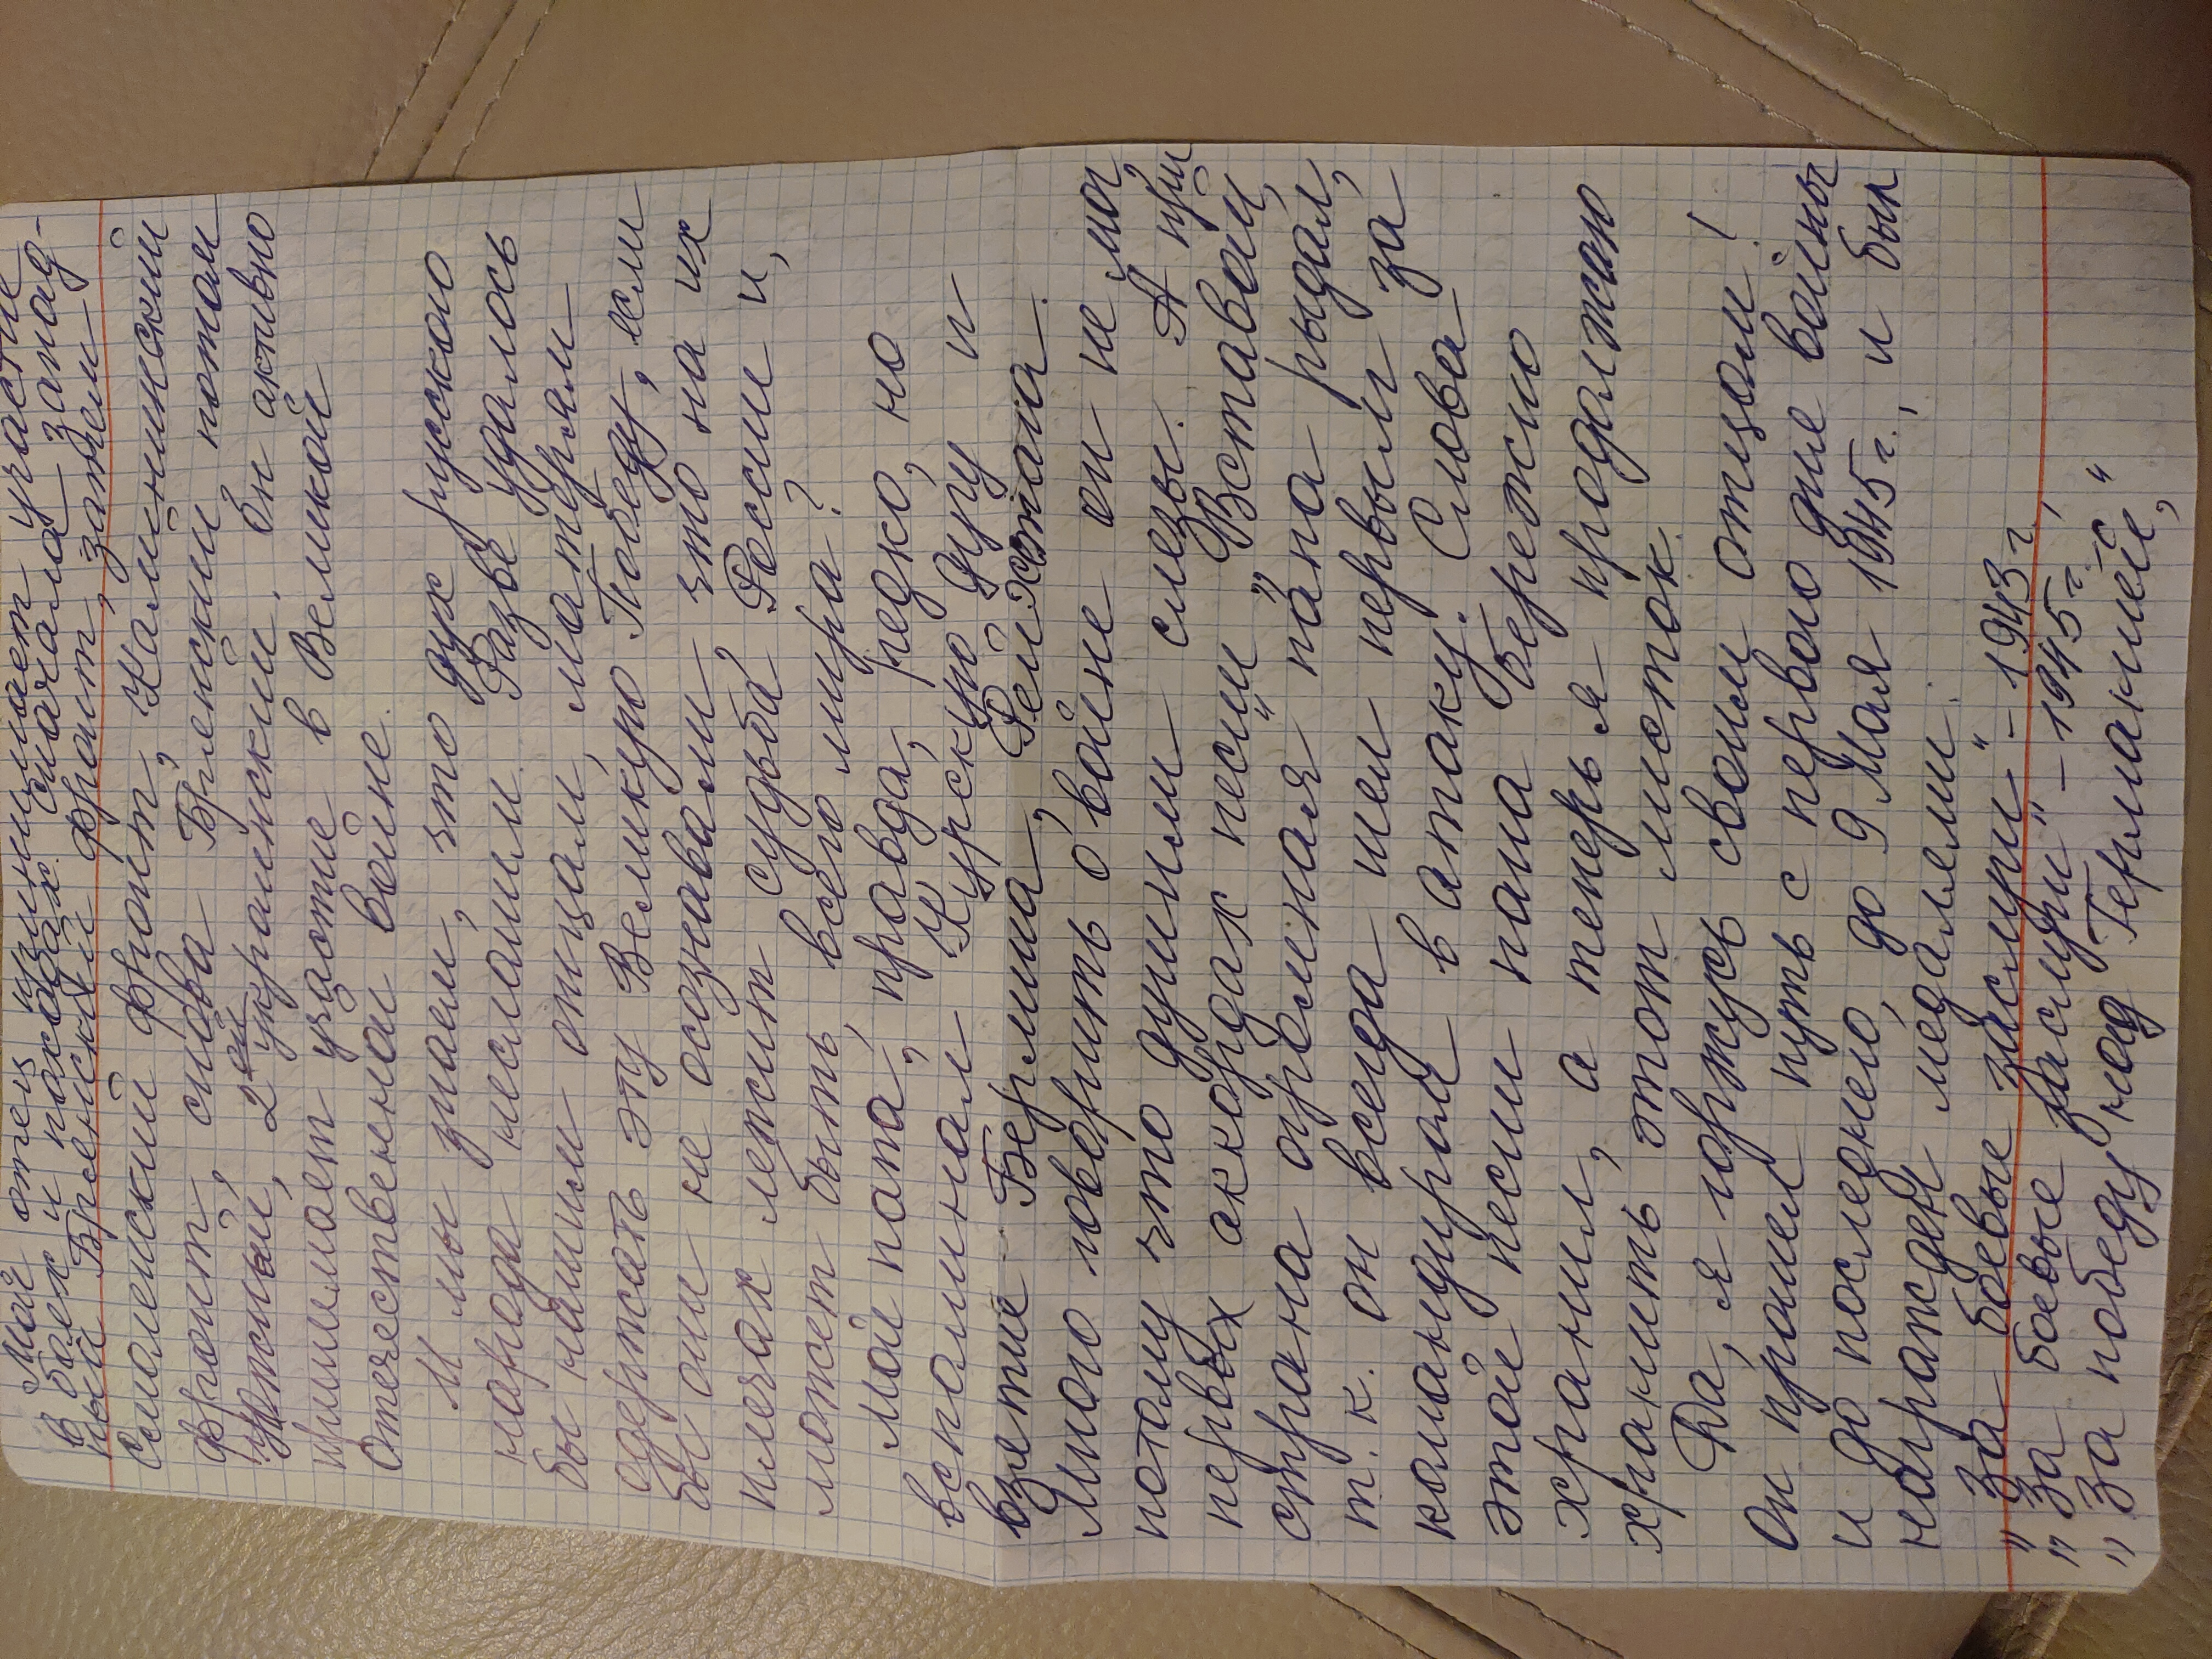 Мой отец принимает участие
в боях и походах: сначала запад-
ный Брянский фронт, затем
Смоленский фронт, Калининский
фронт, снова Брянский потом
Южный, 2-ой украинский. Он активно
принимает участие в Великой
Отечественной войне.
И мы знаем, что дух русского
народа несломим. Разве удалось
бы нашим отцам, матерям
одержать эту Великую Победу, если
бы они не осознавали что на их
плечах лежит судьба России и,
может быть, всего мира?
Мой папа, правда, редко, но
вспоминал Курскую дугу и
взятие Берлина, Рейхстага.
Много говорить о войне он не мог,
потому что душили слезы. А при
первых аккордах песни „Вставай,
страна огромная" папа рыдал,
т. к. он всегда шел первым за
командиром в атаку. Слова
этой песни папа бережно
хранил, а теперь я продолжаю
хранить этот листок.
Да, я горжусь своим отцом!
Он прошел путь с первого дня войны
и до последнего, до 9 Мая 1945 г., и был
награжден медалями:
„За боевые заслуги" – 1943 г.
„За боевые заслуги" – 1945 г.,
„За победу над Германией"